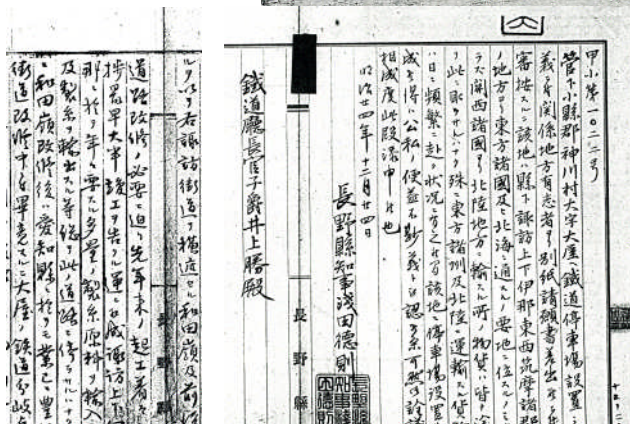 甲小第一〇二二号
管下小縣郡神川村大字大屋ニ鐵道停車場設置ノ
義ニ付関係地方有志者ヨリ別紙請願書差出候ニ付
審按スルニ該地ハ縣下諏訪上下伊那東西筑摩諸郡
ノ地方ヨリ東方諸國及ヒ北海ニ通スルノ要地ニ位スルノミナ
ラス関西諸國ヨリ北陸地方ニ輸スル所ノ物貨ハ皆
此ニ取ラサルハナク殊ニ東方諸州及北陸ニ運輸スル貨物
ハ日ニ頻繁ニ赴ク状况ニ有之候ニ付該地ヘ停車場設置
成ヲ得ハ公私ノ便益不尠義ト認メ候条可然御詮議
相成度此段稟申候也
明治廿四年十二月廿四日
長野縣知事淺田德則
鐵道廳長官子爵井上勝殿
長野縣
ルヲ以テ右諏訪街道ヲ横庭セル和田嶺及
道路改修ノ必要ニ迫リ先年来ノ起工着々
捗畧早大半竣工ヲ告クルノ運ヒ成諏訪上下
郡ニ於テ年々要スル多量ノ製糸原料ヲ輸入
及製糸ヲ輸出スル等総テ此道路ニ倚ラサルハナ
和田嶺改修後ハ愛知縣ニ於テモ業已ニ
街道改修中ニテ畢竟スルニ大屋ハ鉄道分岐